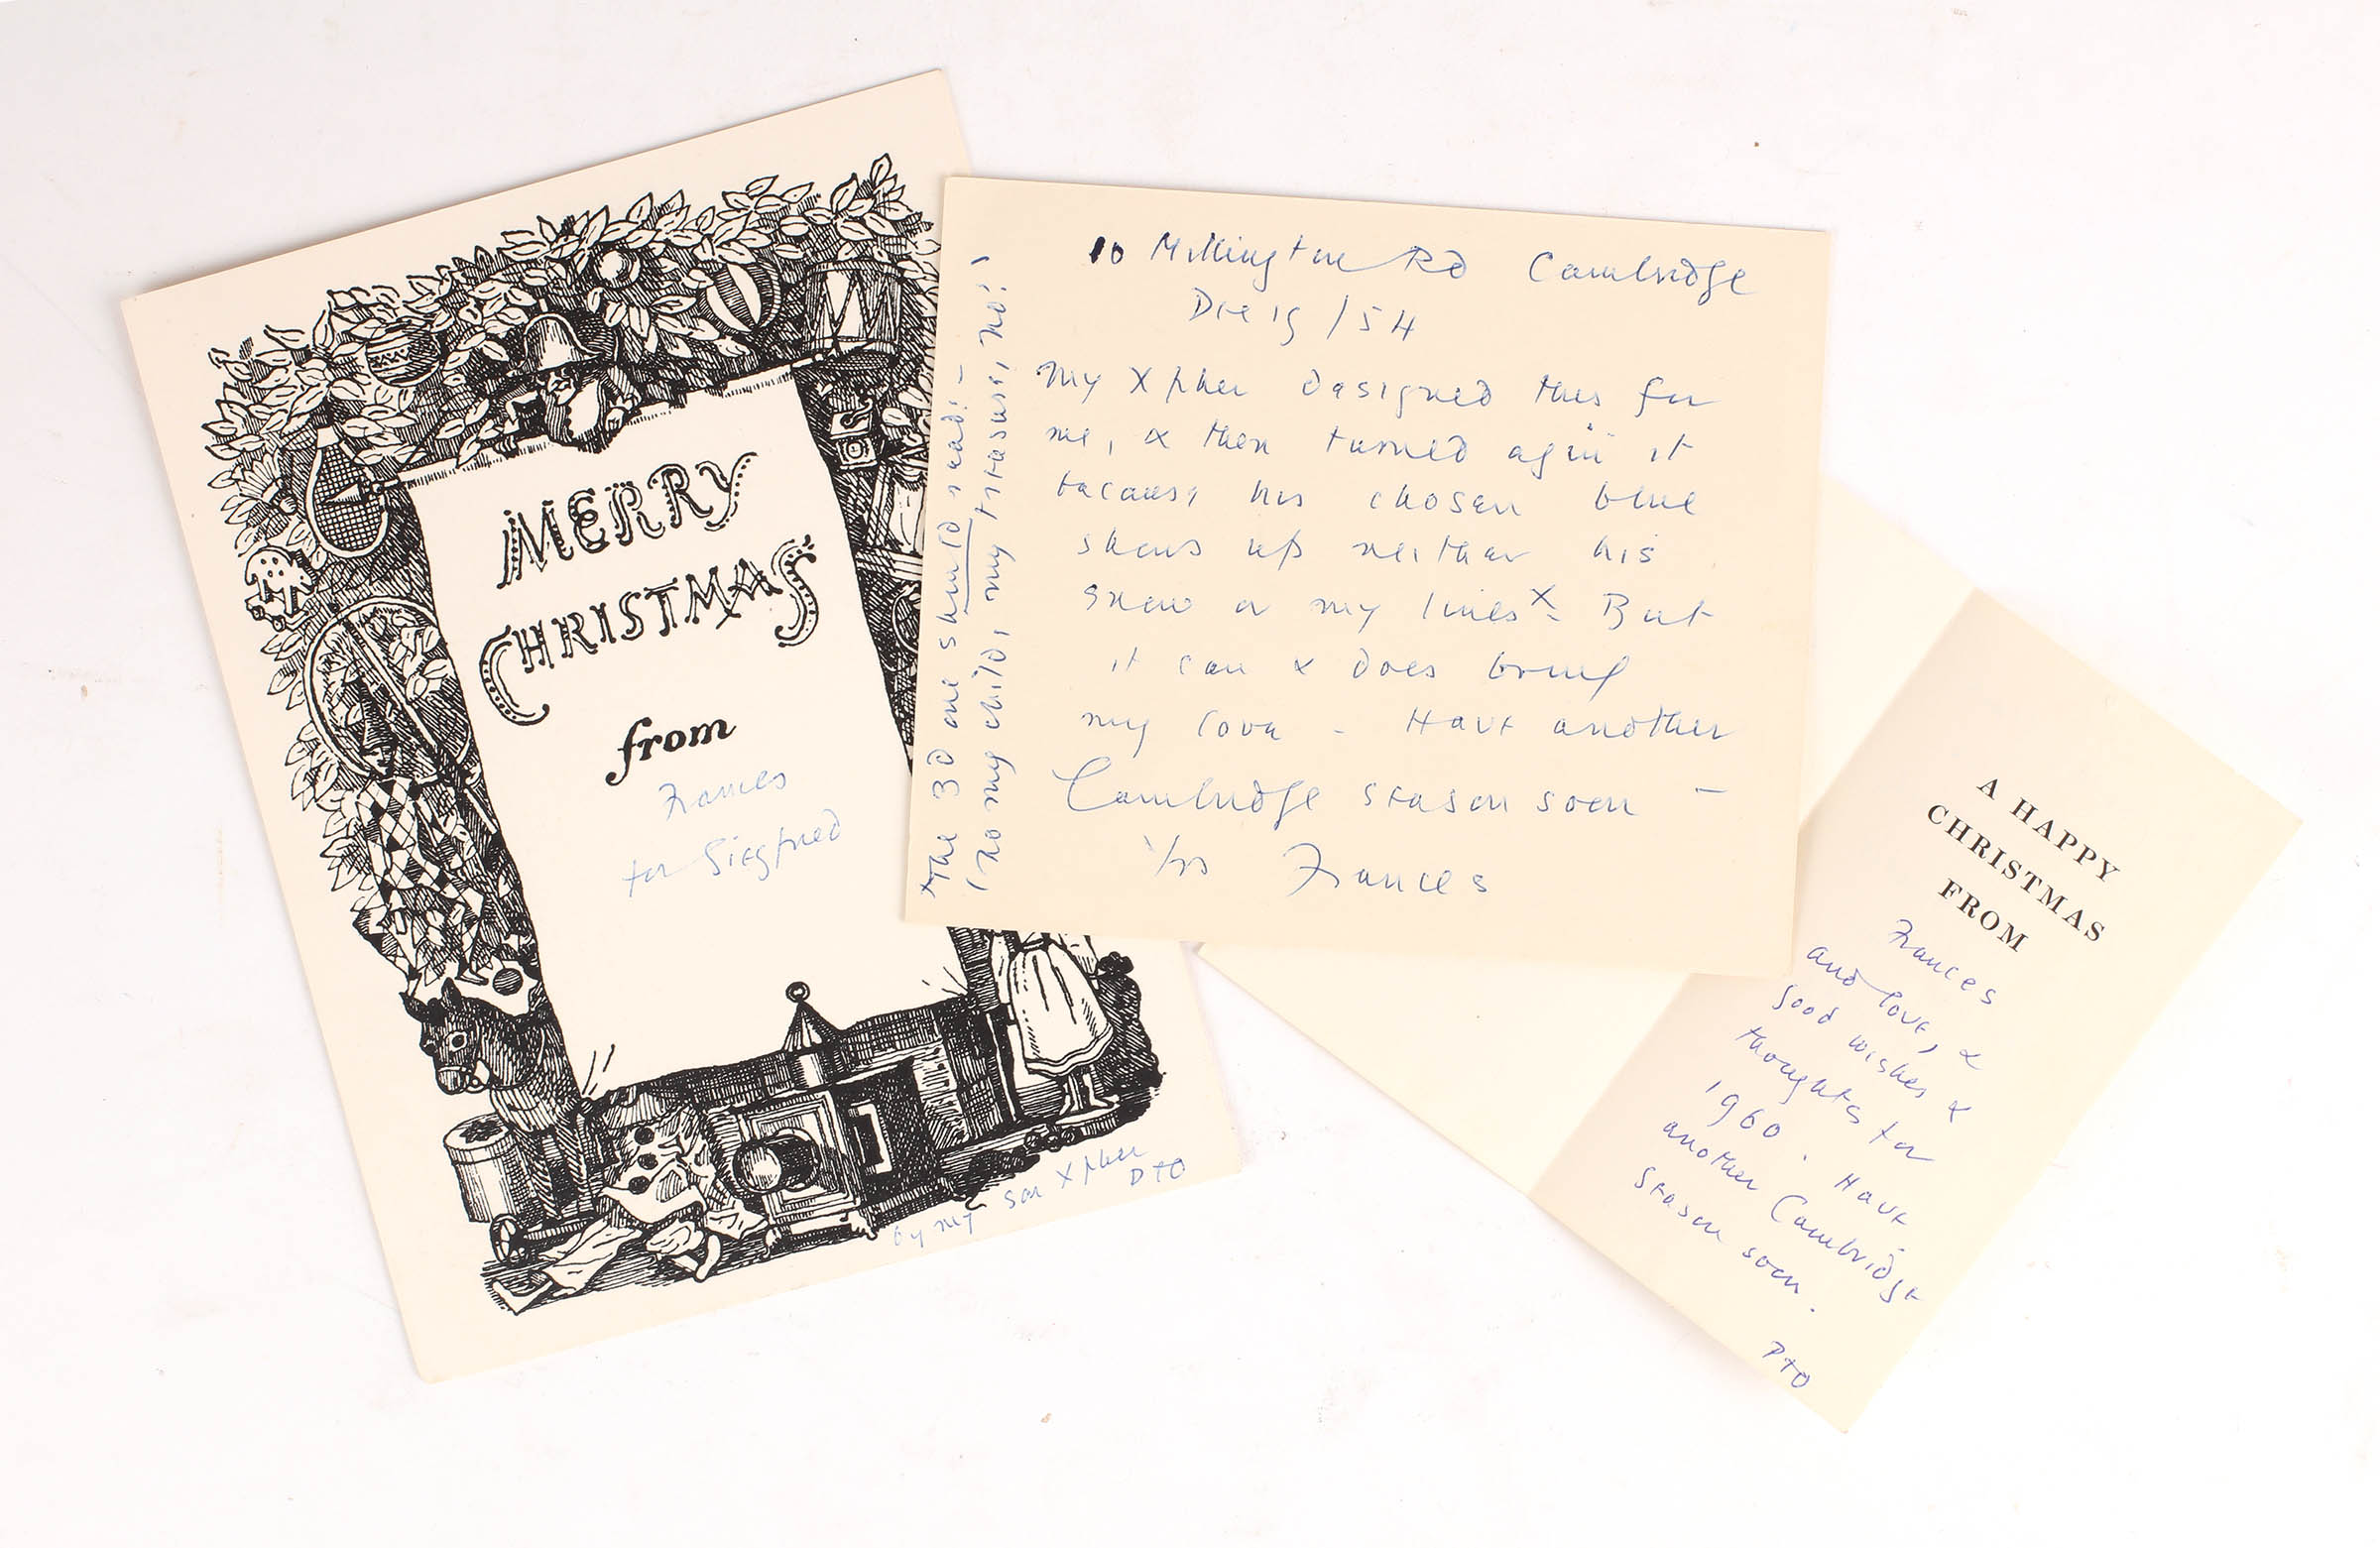 MERRY
CHRISTMAS
from
Frances
for Siegfried
by my son Xpher
PTO
10 Millington Rd Cambridge
Dec 19 / 54
My Xpher designed this for
me, & then turned agin it
because his chosen blue
shows up neither his
snow or my lines x - But
it can & does bring
my love - Have another
Cambridge season soon -
Yrs Frances
x The 3d one should read: -
(no my child, my treasure, no!)
A HAPPY
CHRISTMAS
FROM
Frances
and love, &
good wishes &
thoughts for
1960. Have
another Cambridge
season soon.
PTO